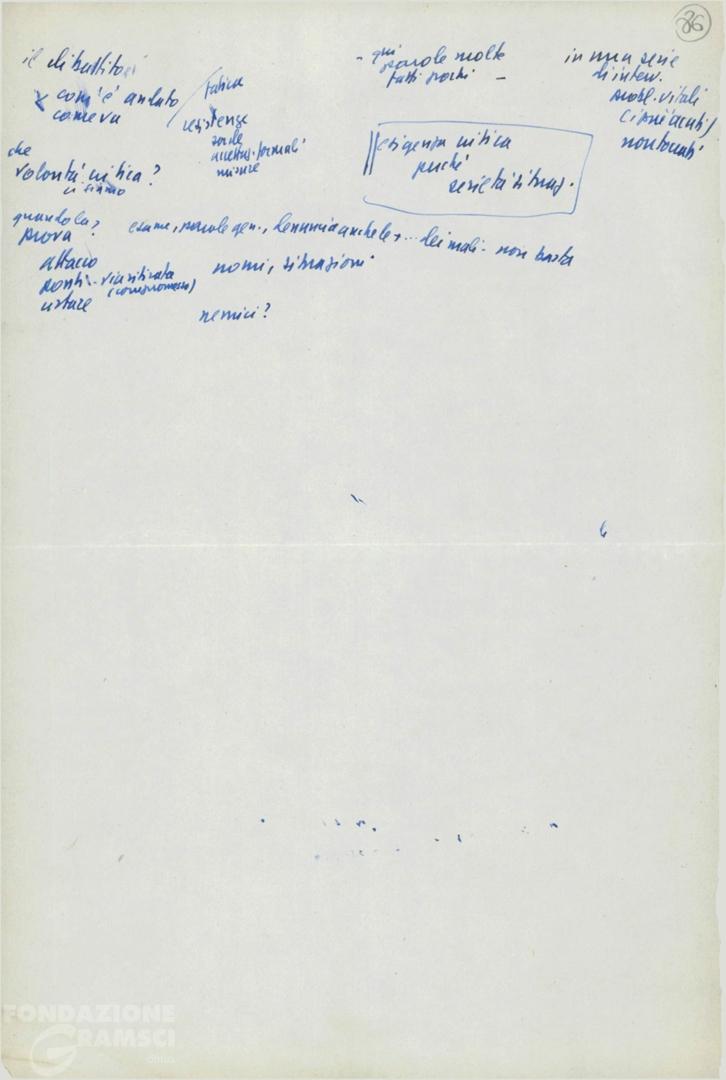 86
il dibattito
com'è andato
come va
fatica
resistenze
sorde
accettaz. formali
misure
- qui
parole molte
fatti pochi -
in una serie
di interv.
probl. vitali
(i più acuti)
non toccati
che
volontà critica?
ci siamo
esigenza critica
perché
serietà situaz.
quando la?
prova
esame, parole gen., denuncia anche dei mali - non basta
attacco
nomi, situazioni
ponti - via ritirata
(compromesso)
urtare
nemici?
FONDAZIONE
GRAMSCI
onlus